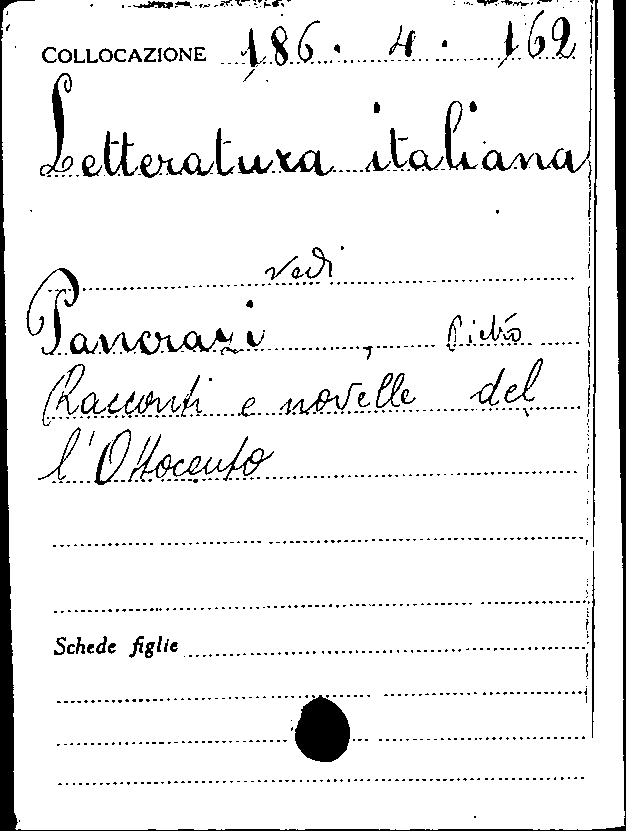 COLLOCAZIONE 186. 4. 162
Letteratura italiana
vedi
Pancrazi, Pietro
Racconti e novelle del
l'Ottocento
Schede figlie